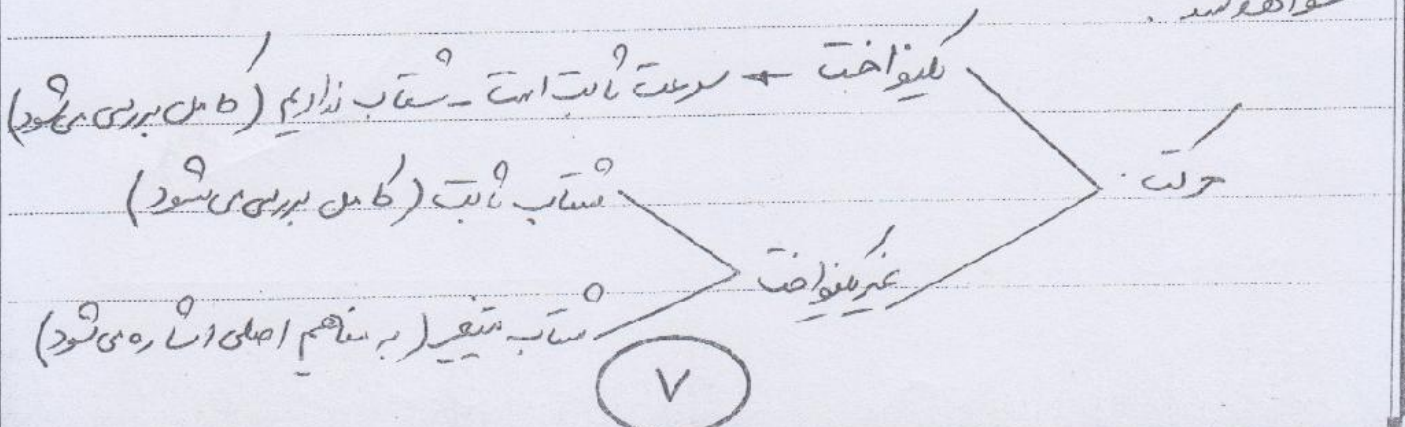 خواهد شد .
یکنواخت ← سرعت ثابت است - شتاب نداریم (کامل بررسی می‌شود)
حرکت
شتاب ثابت (کامل بررسی می‌شود)
غیریکنواخت
شتاب متغیر (به مفاهیم اصلی اشاره می‌شود)
۷